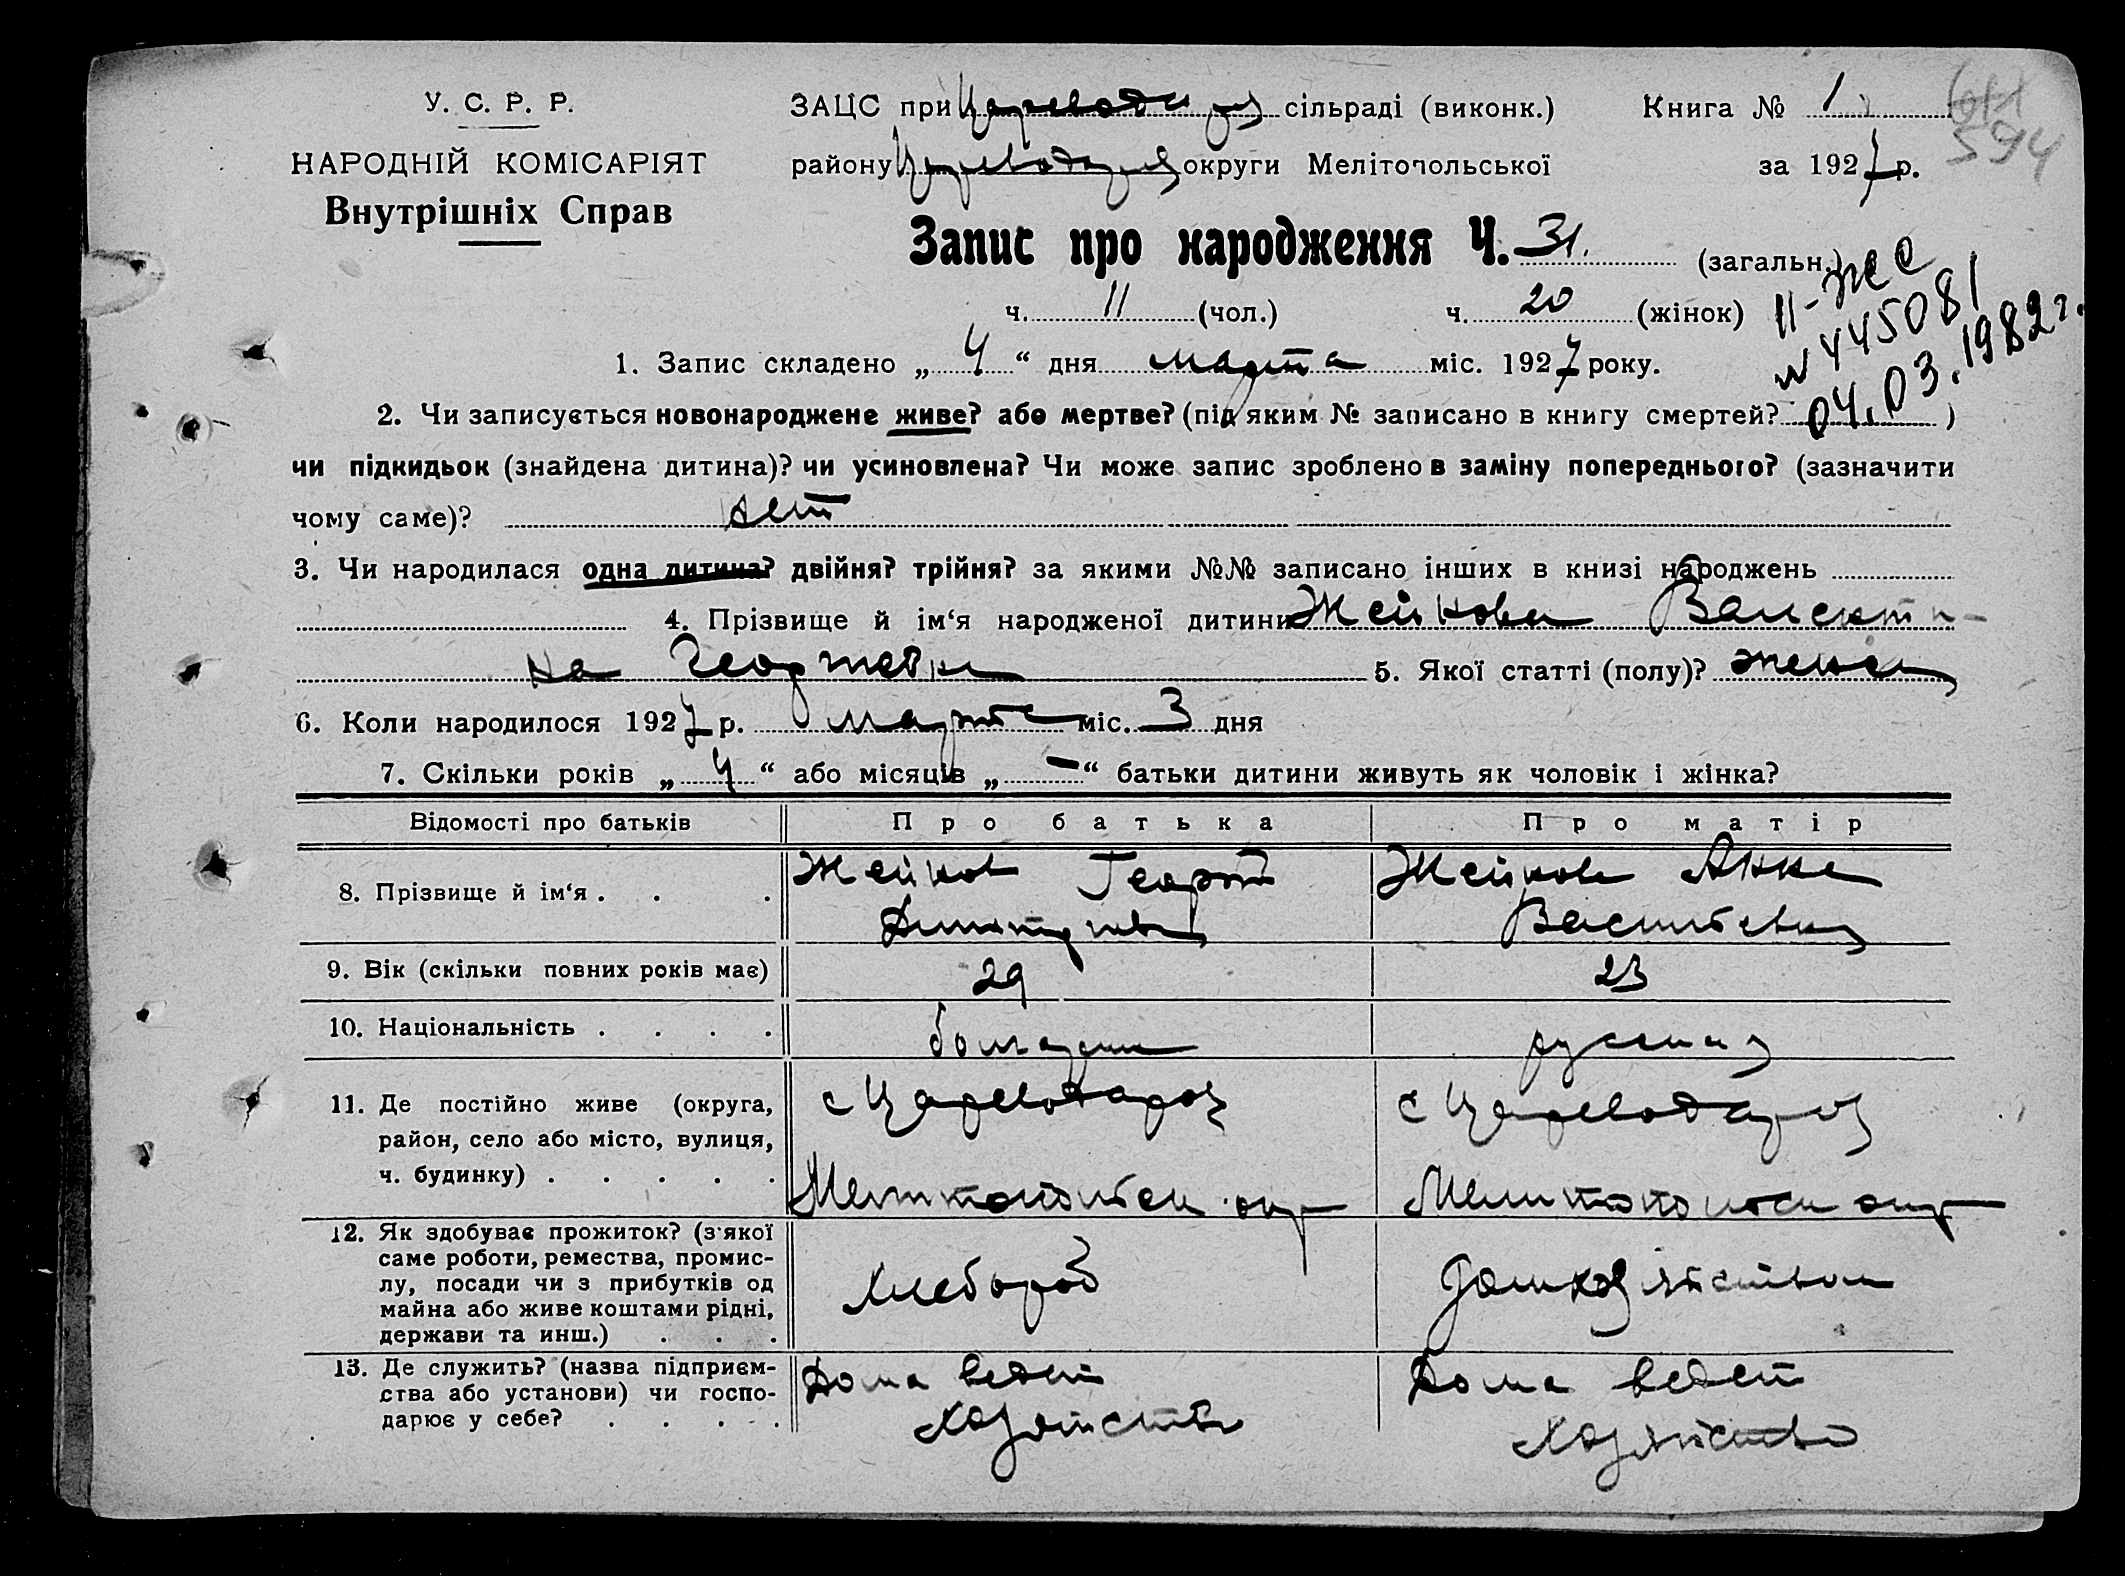 У. С. Р. Р.
НАРОДНІЙ КОМІСАРІЯТ
Внутрішніх Справ
ЗАЦС при сільраді (виконк.)
району округи Мелітопольської
Книга № 1
за 1927 р.
594
Запис про народження Ч. 31. (загальн.)
ч. 11 (чол.) ч. 20 (жінок)
II-ЖС
№ 445081
04.03.1982 г.
1. Запис складено „ 4 “ дня марта міс. 1927 року.
2. Чи записується новонароджене живе? або мертве? (під яким № записано в книгу смертей? )
чи підкидьок (знайдена дитина)? чи усиновлена? Чи може запис зроблено в заміну попереднього? (зазначити
чому саме)? нет
3. Чи народилася одна дитина? двійня? трійня? за якими №№ записано інших в книзі народжень
4. Прізвище й ім‘я народженої дитини Жейнова Валенти-
на Георгиевна 5. Якої статті (полу)? женск
6. Коли народилося 1927 р. марта міс. 3 дня
7. Скільки років „ 4 “ або місяців „ — “ батьки дитини живуть як чоловік і жінка?
Відомості про батьків Про батька Про матір
8. Прізвище й ім‘я . . . Жейнов Георгий Жейнова Анна
Дмитриев Васильевна
9. Вік (скільки повних років має) 29 23
10. Національність . . . . болгарин русская
11. Де постійно живе (округа, район, село або місто, вулиця, ч. будинку) . . . . . с Цареводаровка с Цареводаровка
Мелитопольск. окр Мелитопольск окр
12. Як здобуває прожиток? (з'якої саме роботи, ремества, промислу, посади чи з прибутків од майна або живе коштами рідні, держави та инш.) . . . Хлебороб Домхозяйством
13. Де служить? (назва підприємства або установи) чи господарює у себе? . . . . Дома ведет Дома ведет
хозяйство хозяйство